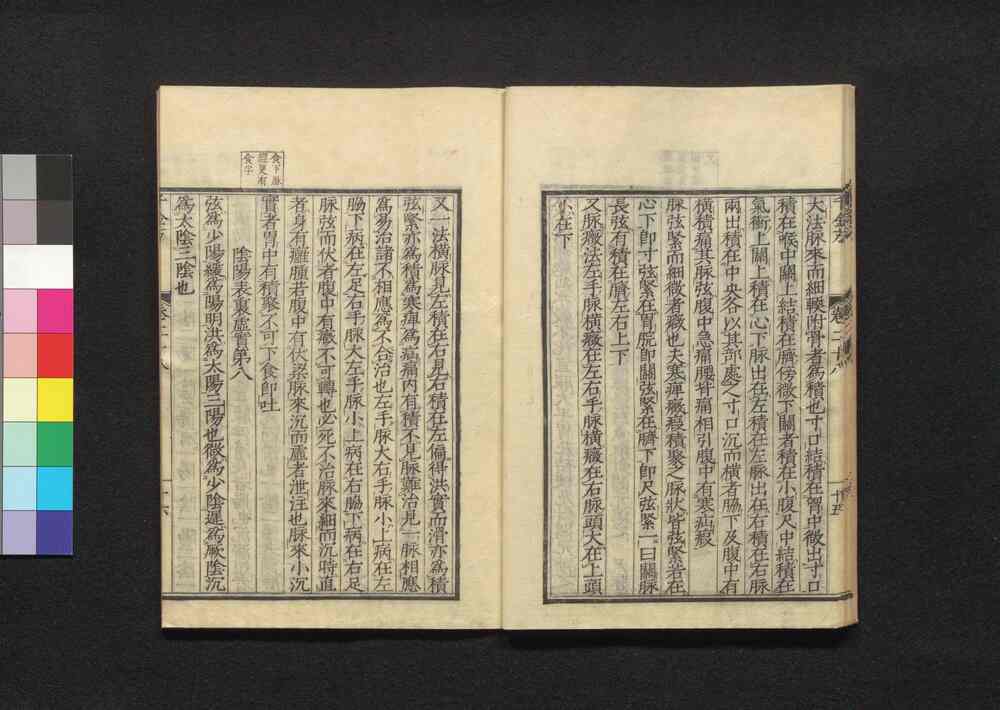 大法脉來而細軟附骨者爲積也寸口結積在胷中微出寸口
積在喉中關上結積在臍傍微下關者積在小腹尺中結積在
氣衝上關上積在心下脉出在左積在左脉出在右積在右脉
兩出積在中央各以其部處之寸口沉而橫者脇下及腹中有
橫積痛其脉弦腹中急痛腰背痛相引腹中有寒疝瘕
脉弦緊而細微者癥也夫寒痺癥瘕積聚之脉狀皆弦緊若在
心下即寸弦緊在胃脘即關弦緊在臍下即尺弦緊一曰關脉
長弦有積在臍左右上下
又脉癥法左手脉橫癥在左右手脉橫癥在右脉頭大在上頭
小在下
卷二十八
十五
又一法橫脉見左積在右見右積在左偏得洪實而滑亦爲積
弦緊亦爲積爲寒痺爲疝痛內有積不見脉難治見一脉相應
爲易治諸不相應爲不合治也左手脉大右手脉小上病在左
脇下病在左足右手脉大左手脉小上病在右脇下病在右足
脉弦而伏者腹中有癥不可轉也必死不治脉來細而沉時直
者身有癰腫若腹中有伏梁脉來沉而虛者泄注也脉來小沉
實者胃中有積聚不可下食即吐
食下脉
經更有
食字
陰陽表裏虛實第八
弦爲少陽緩爲陽明洪爲太陽三陽也微爲少陰遲爲厥陰沉
爲太陰三陰也